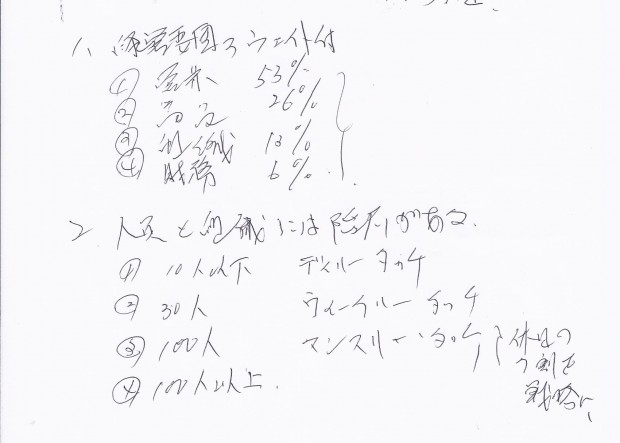 1、経営要因のウエイト付
① 営業 53%
② 26%
③ 組織 13%
④ 財務 6%
2 人員と組織には がある.
① 10人以下 デイリータッチ
② 30人 ウィークリータッチ
③ 100人 マンスリータッチ
④ 100人以上.
戦略に